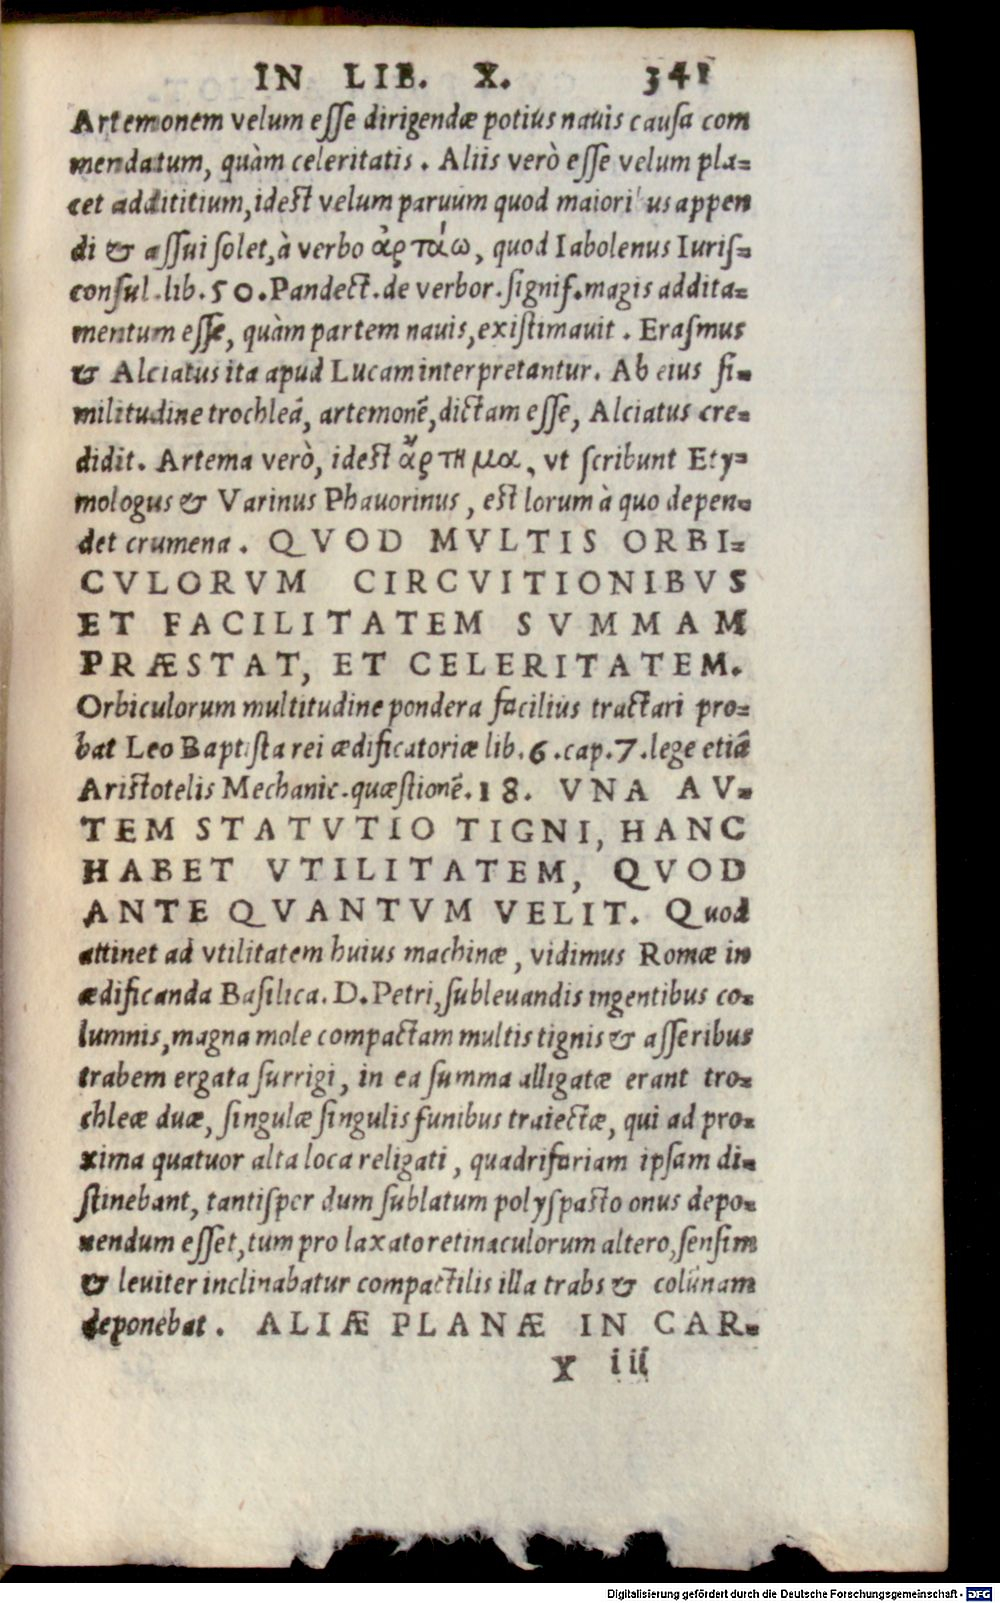 IN LIB. X. 341
Artemonem velum esse dirigendæ potius nauis causa com
mendatum, quàm celeritatis. Aliis verò esse velum pla=
cet addititium, idest velum paruum quod maioribus appen
di & assui solet, à verbo ἀρτάω, quod Iabolenus Iuris=
consul. lib. 50. Pandect. de verbor. signif. magis addita=
mentum esse, quàm partem nauis, existimauit. Erasmus
& Alciatus ita apud Lucam interpretantur. Ab eius si=
militudine trochleā, artemonē, dictam esse, Alciatus cre=
didit. Artema verò, idest ἄρτημα, vt scribunt Ety=
mologus & Varinus Phauorinus, est lorum à quo depen=
det crumena. QVOD MVLTIS ORBI=
CVLORVM CIRCVITIONIBVS
ET FACILITATEM SVMMAM
PRÆSTAT, ET CELERITATEM.
Orbiculorum multitudine pondera facilius tractari pro=
bat Leo Baptista rei ædificatoriæ lib. 6. cap. 7. lege etiā
Aristotelis Mechanic. quæstionē. 18. VNA AV=
TEM STATVTIO TIGNI, HANC
HABET VTILITATEM, QVOD
ANTE QVANTVM VELIT. Quod
attinet ad vtilitatem huius machinæ, vidimus Romæ in
ædificanda Basilica. D. Petri, subleuandis ingentibus co=
lumnis, magna mole compactam multis tignis & asseribus
trabem ergata surrigi, in ea summa alligatæ erant tro=
chleæ duæ, singulæ singulis funibus traiectæ, qui ad pro=
xima quatuor alta loca religati, quadrifariam ipsam di=
stinebant, tantisper dum sublatum polyspasto onus depo=
nendum esset, tum pro laxato retinaculorum altero, sensim
& leuiter inclinabatur compactilis illa trabs & colūnam
deponebat. ALIÆ PLANÆ IN CAR=
X iii
Digitalisierung gefördert durch die Deutsche Forschungsgemeinschaft - DFG